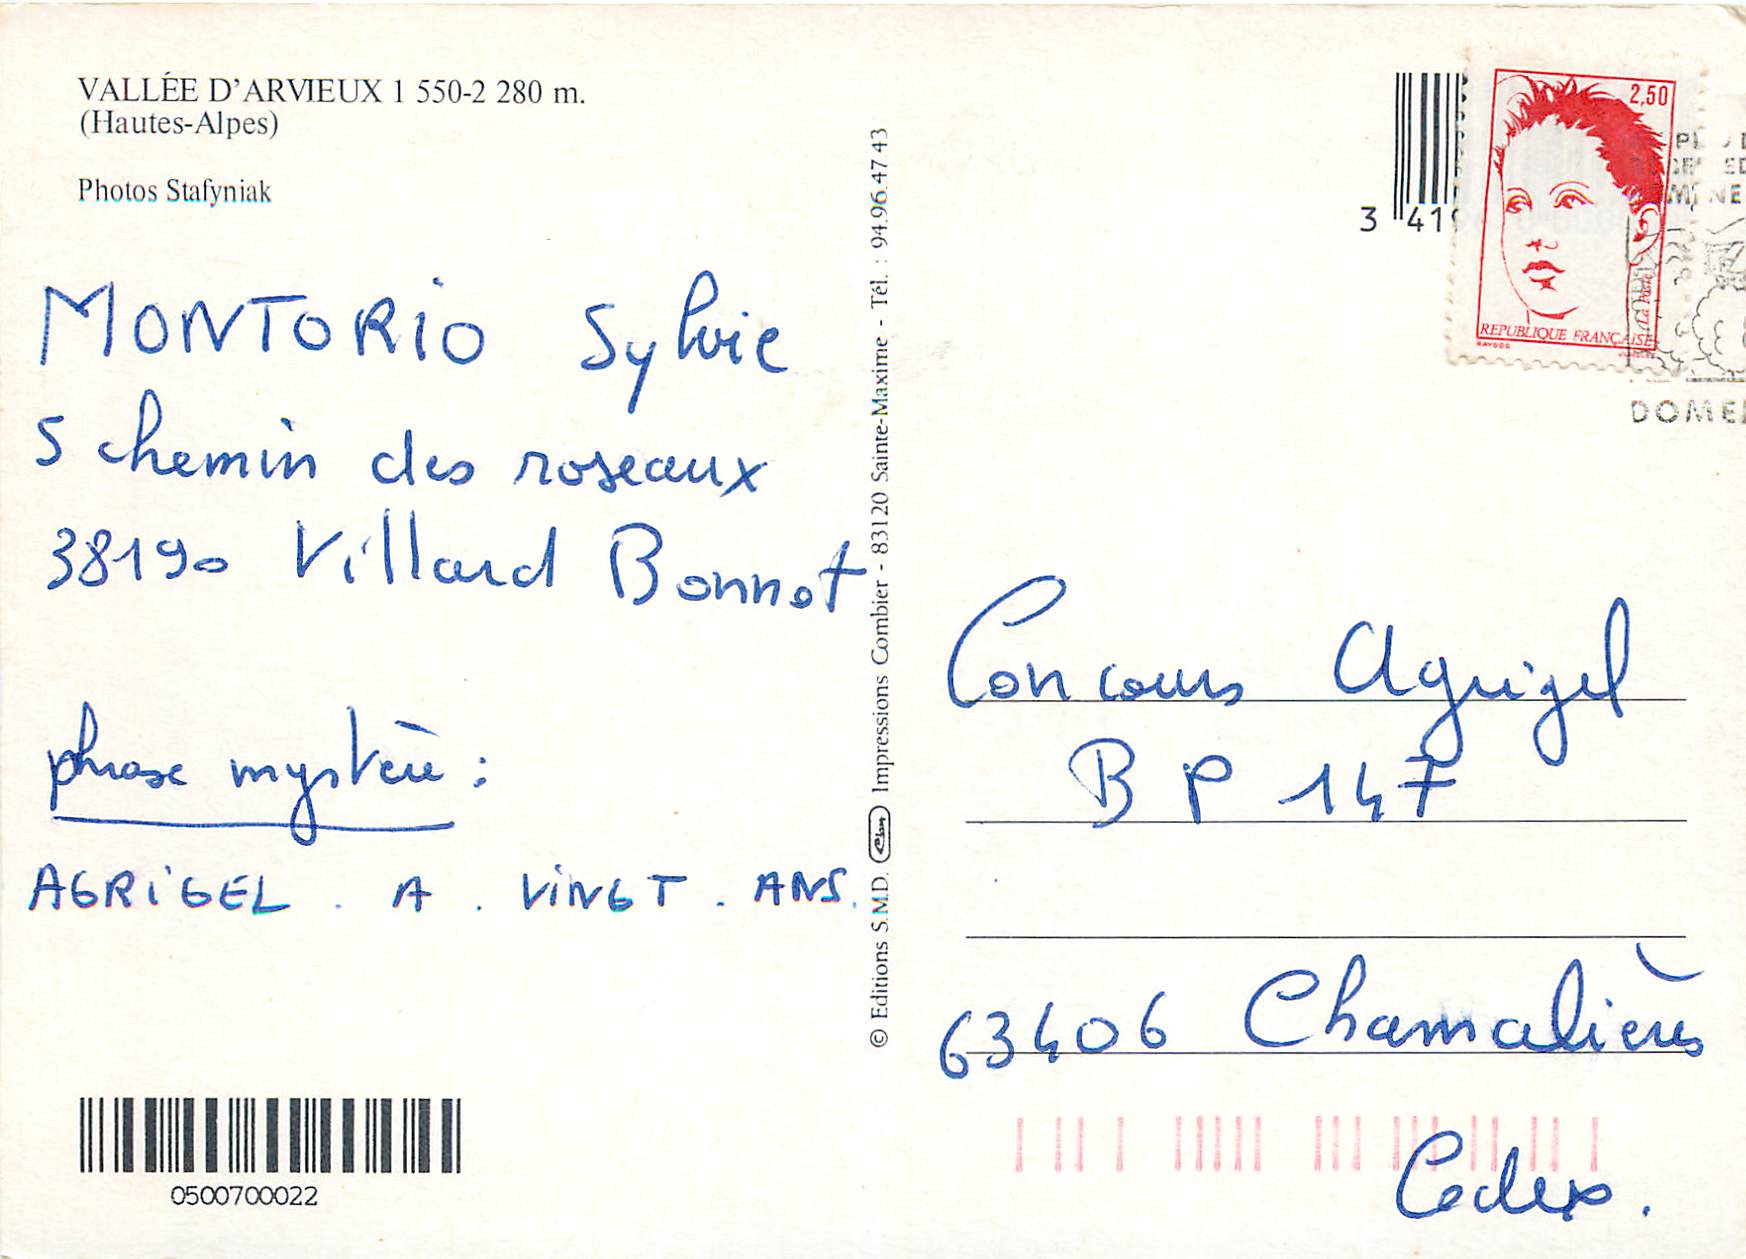 VALLÉE D'ARVIEUX 1 550-2 280 m.
(Hautes-Alpes)
Photos Stafyniak
MONTORIO Sylvie
5 chemin des roseaux
38190 Villard Bonnot
phrase mystère :
AGRIGEL . A . VINGT . ANS.
0500700022
© Editions S.M.D. Impressions Combier - 83120 Sainte-Maxime - Tél. : 94.96.47.43
3 41
2,50
La Poste
REPUBLIQUE FRANÇAISE
DOME
Concours Agrigel
BP 147
63406 Chamalières
Cedex.